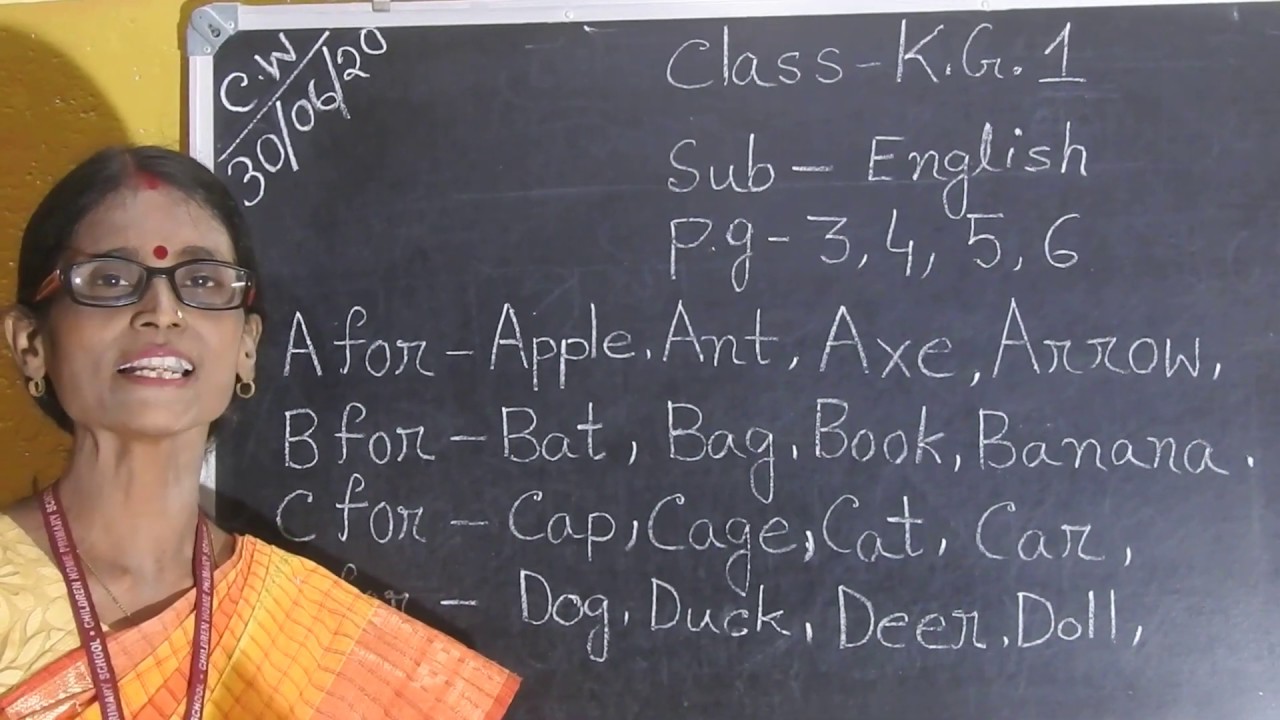 C.W
30/06/20
Class-K.G.1
Sub- English
P.g-3,4, 5,6
A for-Apple, Ant, Axe, Arrow,
B for-Bat, Bag, Book, Banana.
C for-Cap, Cage, Cat, Car,
for- Dog, Duck, Deer, Doll,
PRIMARY SCHOOL • CHILDREN HOME PRIMARY SCHOOL
SCHOOL • CHILDREN HOME PRIMARY